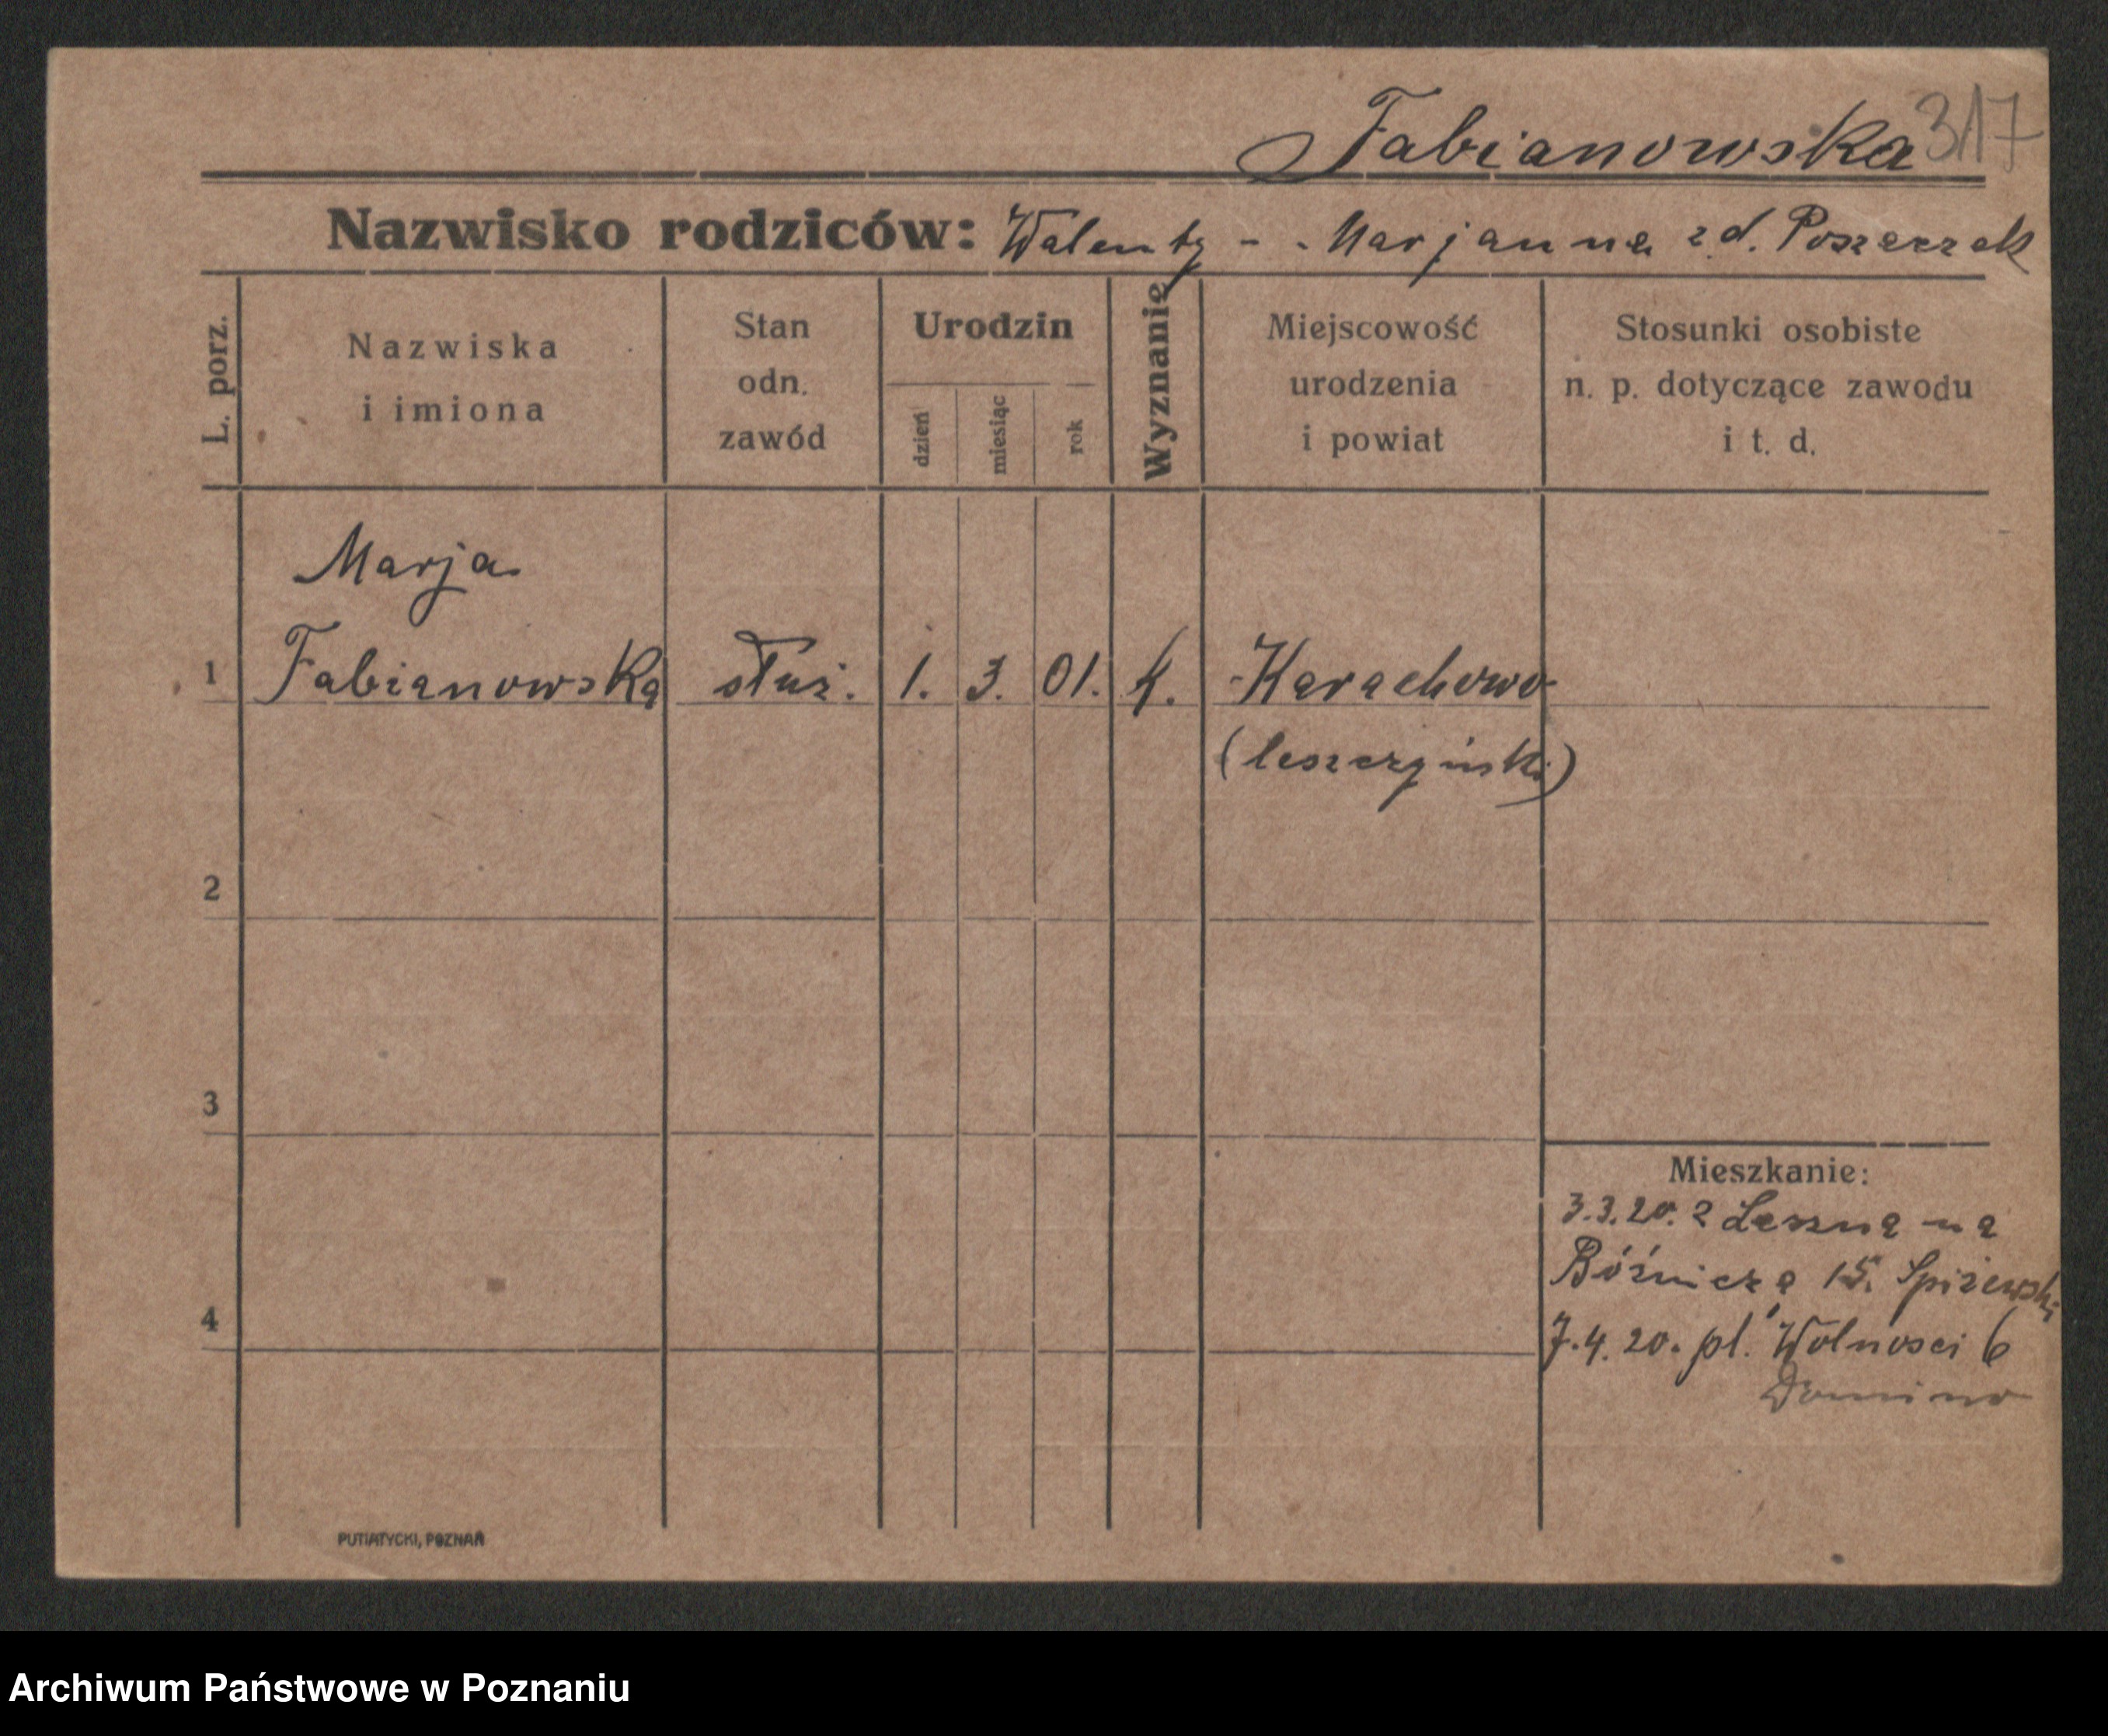 Fabianowska 317
Nazwisko rodziców: Walenty - Marjanna zd. Poszczak
L. porz.
Nazwiska
i imiona
Stan
odn.
zawód
Urodzin
dzień
miesiąc
rok
Wyznanie
Miejscowość
urodzenia
i powiat
Stosunki osobiste
n. p. dotyczące zawodu
i t. d.
Marja
1 Fabianowska służ. 1. 3. 01. k. Karachowo
(leszczyński)
2
3
4
Mieszkanie:
3.3.20. z Leszna na
Bóżnicza 15. Spiżewski
7.4.20. pl. Wolnosci 6
Domino
PUTIATYCKI, POZNAŃ
Archiwum Państwowe w Poznaniu